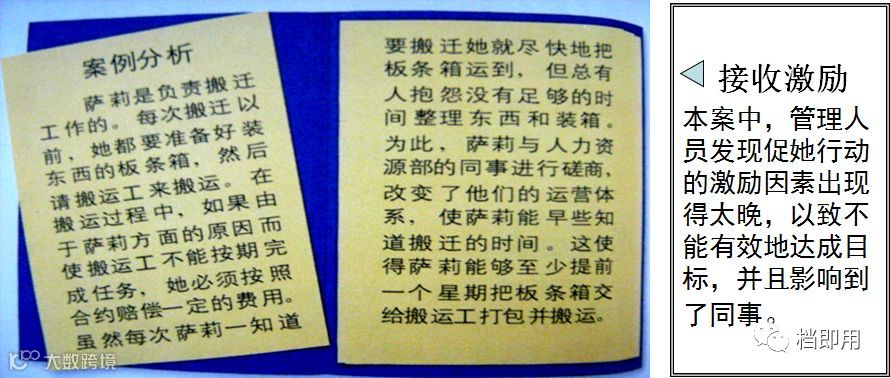 案例分析
萨莉是负责搬迁
工作的。每次搬迁以
前，她都要准备好装
东西的板条箱，然后
请搬运工来搬运。在
搬运过程中，如果由
于萨莉方面的原因而
使搬运工不能按期完
成任务，她必须按照
合约赔偿一定的费用。
虽然每次萨莉一知道
要搬迁她就尽快地把
板条箱运到，但总有
人抱怨没有足够的时
间整理东西和装箱。
为此，萨莉与人力资
源部的同事进行磋商，
改变了他们的运营体
系，使萨莉能早些知
道搬迁的时间。这使
得萨莉能够至少提前
一个星期把板条箱交
给搬运工打包并搬运。
接收激励
本案中，管理人
员发现促她行动
的激励因素出现
得太晚，以致不
能有效地达成目
标，并且影响到
了同事。
档即用
大数跨境